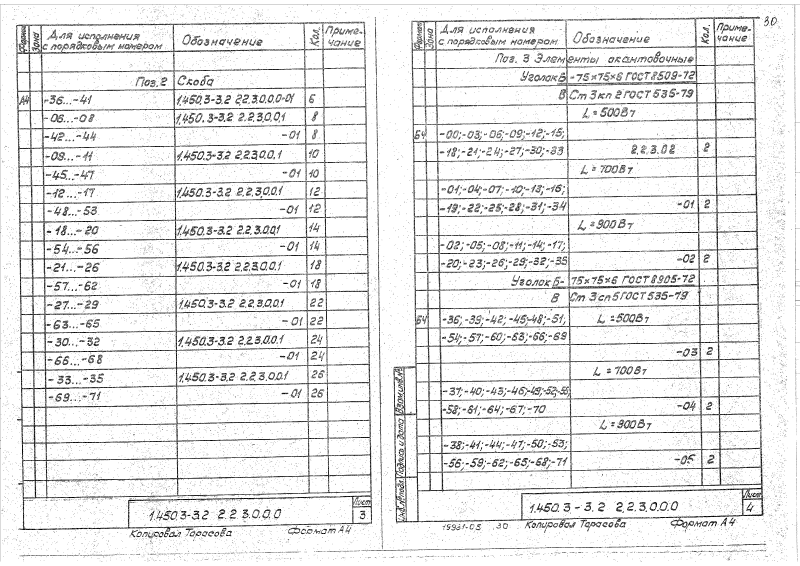 Формат Зона Для исполнения с порядковым номером Обозначение Кол. Приме- чание
Поз. 2 Скоба
А4 -36...-41 1.450.3-3.2 2.2.3.0.0.0-01 6
-06...-08 1.450.3-3.2 2.2.3.0.0.1 8
-42...-44 -01 8
-09...-11 1.450.3-3.2 2.2.3.0.0.1 10
-45...-47 -01 10
-12...-17 1.450.3-3.2 2.2.3.0.0.1 12
-48...-53 -01 12
-18...-20 1.450.3-3.2 2.2.3.0.0.1 14
-54...-56 -01 14
-21...-26 1.450.3-3.2 2.2.3.0.0.1 18
-57...-62 -01 18
-27...-29 1.450.3-3.2 2.2.3.0.0.1 22
-63...-65 -01 22
-30...-32 1.450.3-3.2 2.2.3.0.0.1 24
-66...-68 -01 24
-33...-35 1.450.3-3.2 2.2.3.0.0.1 26
-69...-71 -01 26
1.450.3-3.2 2.2.3.0.0.0 Лист 3
Копировал Тарасова Формат А4
30
Формат Зона Для исполнения с порядковым номером Обозначение Кол. Приме- чание
Поз. 3 Элементы окантовочные
Уголок Б -75×75×6 ГОСТ 8509-72
В Ст 3 кп 2 ГОСТ 535-79
L = 500 Вт
Б4 -00;-03;-06;-09;-12;-15;
-18;-21;-24;-27;-30;-33 2.2.3.0.2 2
L = 700 Вт
-01;-04;-07;-10;-13;-16;
-19;-22;-25;-28;-31;-34 -01 2
L = 900 Вт
-02;-05;-08;-11;-14;-17;
-20;-23;-26;-29;-32;-35 -02 2
Уголок Б- 75×75×6 ГОСТ 8905-72
В Ст 3 сп 5 ГОСТ 535-79
Б4 -36;-39;-42;-45;-48;-51; L = 500 Вт
-54;-57;-60;-63;-66;-69
-03 2
L = 700 Вт
-37;-40;-43;-46;-49;-52;-55;
-58;-61;-64;-67;-70 -04 2
L = 900 Вт
-38;-41;-44;-47;-50;-53;
-56;-59;-62;-65;-68;-71 -05 2
Инв.№ подл. Подпись и дата Взам.инв.№
1.450.3-3.2 2.2.3.0.0.0 Лист 4
19931-03 30 Копировал Тарасова Формат А4